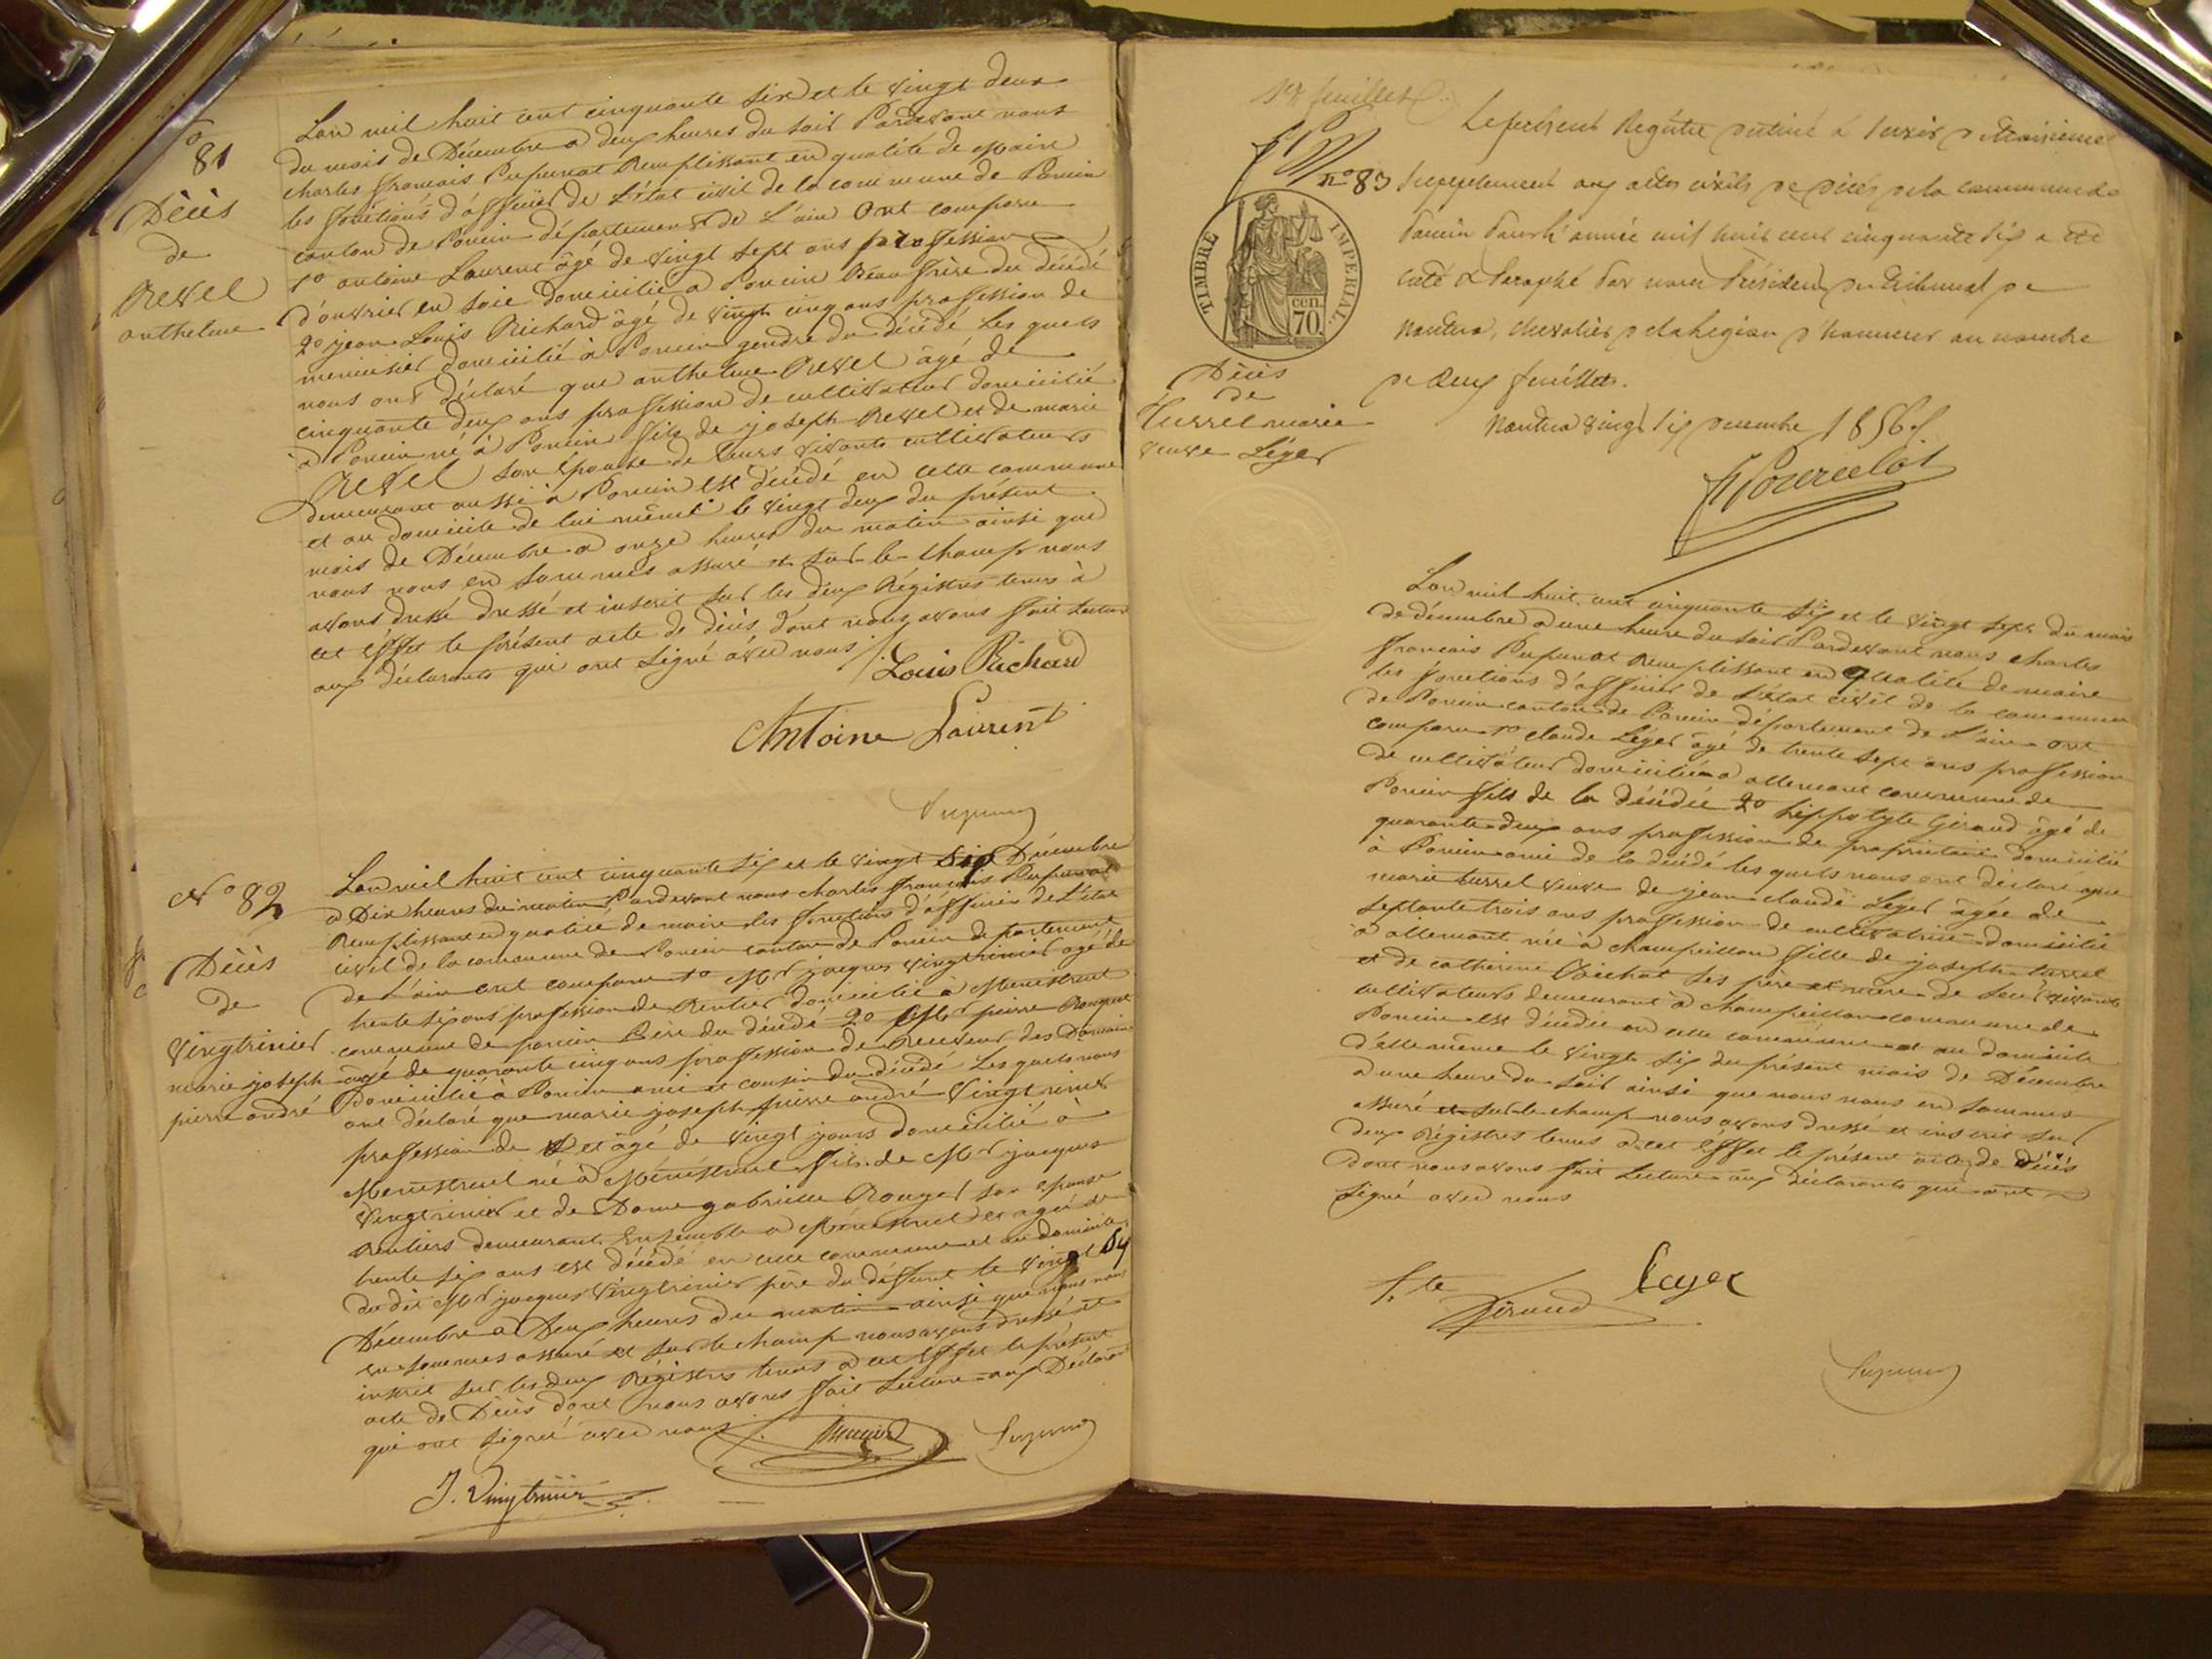 No 81
Décès
de
Revel
anthelme
Lan mil huit cent cinquante six et le vingt deux
du mois de Décembre a deux heures du soir Pardevant nous
charles françois Pupunat Remplissant en qualité de Maire
les fonctions d'officier de L'état civil de la commune de Poncin
canton de Poncin département de L'ain Ont comparu
1o antoine Laurent âgé de vingt sept ans profession
d'ouvrier en soie domicilié a Poncin Beau frère du décédé
2o jean Louis Richard âgé de vingt cinq ans profession de
menuisier domicilié à Poncin gendre du décédé Les quels
nous ont déclaré que anthelme Revel âgé de
cinquante deux ans profession de cultivateur domicilié
à Poncin né à Poncin fils de joseph Revel et de marie
Revel son épouse de leurs vivants cultivateurs
demeurant aussi à Poncin est décédé en cette commune
et au domicile de lui même le vingt deux du présent
mois de Décembre a onze heures du matin ainsi que
nous nous en sommes assuré et sur-le-champ nous
avons dressé dressé et inscrit sur les deux Régistres tenus à
cet effet le présent acte de décès dont nous avons fait lecture
aux déclarants qui ont signé avec nous /.
Louis Richard
Antoine Laurent
Pupunat
No 82
Décès
de
Vingtrinier
marie joseph
pierre andré
Lan mil huit cent cinquante six et le vingt six Décembre
a Dix heures du matin Pardevant nous charles françois Pupunat
Remplissant en qualité de maire les fonctions d'officier de L'état
civil de la commune de Poncin canton de Poncin département
de L'ain ont comparu 1o Mr jacques Vingtrinier âgé de
trente six ans profession de Rentier domicilié à Menestruel
commune de poncin Père du décédé 2o Mr pierre Rouget
âgé de quarante cinq ans profession de Receveur des Domaines
domicilié à Poncin ami et cousin du décédé Les quels nous
ont déclaré que marie joseph pierre andré Vingtrinier
profession de et âgé de vingt jours domicilié à
Menestruel né à Ménestruel fils de Mr jacques
Vingtrinier et de Dame gabrielle Rouget son épouse
Rentiers demeurant Ensemble a Ménestruel et agée de
trente six ans est décédé en cette commune et au domicile
du dit Mr jacques Vingtrinier père du déffunt le vingt six
Décembre a Deux heures du matin ainsi que nous nous
en sommes assuré et sur le champ nous avons dressé et
inscrit sur les deux Régistres tenus a cet Effet le présent
acte de Décès dont nous avons fait Lecture aux Déclarants
qui ont signé avec nous /.
Pupunat
J. Vingtrinier
1er feuillet
No 83
TIMBRE IMPERIAL
cen.
70.
Décès
de
Turrel marie
veuve Léger
Le présent Registre destiné à servir de troisième
supplément aux actes civils de décès de la commune de
Poncin pour l'année mil huit cent cinquante six a été
coté & Paraphé Par nous Président du Tribunal de
Nantua, chevalier de la Légion d'honneur au nombre
de deux feuillets.
Nantua vingt six décembre 1856.
Lan mil huit cent cinquante six et le vingt sept du mois
de décembre a une heure du soir Pardevant nous charles
françois Pupunat Remplissant en qualité de maire
les fonctions d'officier de l'état civil de la commune
de Poncin canton de Poncin département de L'ain ont
comparu 1o claude Léger âgé de trente sept ans profession
de cultivateur domicilié a allement commune de
Poncin fils de la décédée 2o hippolyte Giraud âgé de
quarante deux ans profession de propriétaire domicilié
à Poncin ami de la décédé les quels nous ont déclaré que
marie turrel veuve de jean claude Léger âgée de
septante trois ans profession de cultivatrice domicilié
à allement née à champeillon fille de joseph turrel
et de catherine Bichat ses père et mère de leur vivants
cultivateurs demeurant à champeillon commune de
Poncin est décédée en cette commune et au domicile
d'elle même le vingt six du présent mois de Décembre
a une heure du soir ainsi que nous nous en sommes
assuré et sur-le-champ nous avons dressé et inscrit sur
deux Régistres tenus a cet Effet le présent acte de décès
dont nous avons fait Lecture aux déclarants qui ont
signé avec nous
hte
Giraud
Leger
Pupunat